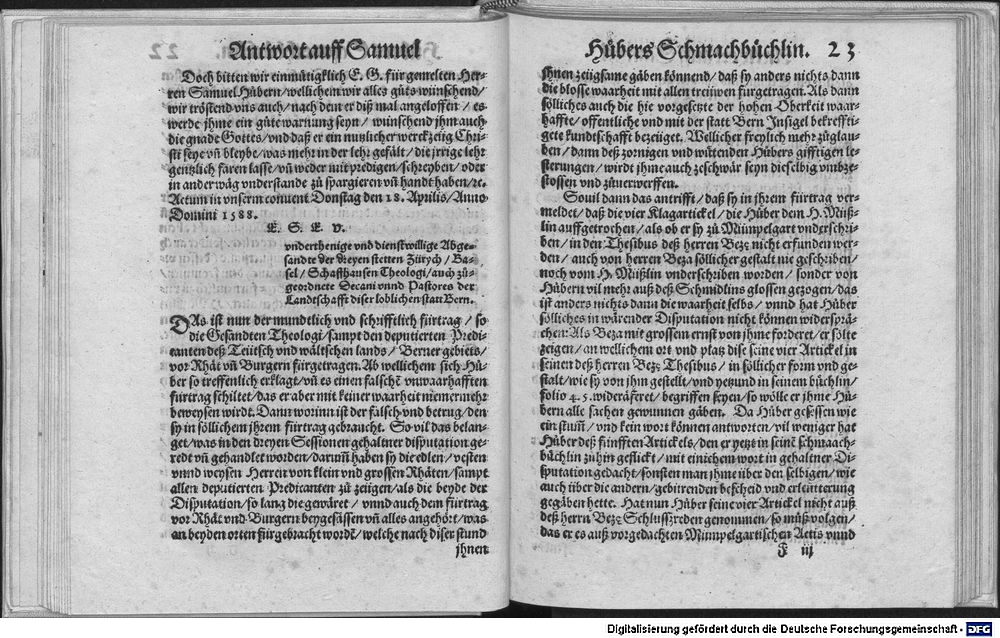 Antwort auff Samuel
Doch bitten wir einmütigklich E. G. für gemelten Her-
ren Samuel Hübern/wellichem wir alles güts wünschend/
wir tröstend vns auch/nach dem er diß mal angeloffen/ es
werde jhme ein güte warnung seyn/ wünschend jhm auch
die gnade Gottes/vnd daß er ein nutzlicher werckzeig Chri-
sti seye vñ bleybe/was mehr in der lehr gefält/die jrrige lehr
gentzlich faren lasse/vñ weder mit predigen/schreyben/oder
in ander wäg vnderstande zů spargieren vñ handthaben/ꝛc.
Actum in vnserm conuent Donstag den 18. Aprilis/Anno
Domini 1588.
E. S. E. V.
vnderthenige vnd dienstwillige Abge-
sandte der dreyen stetten Zürych/Ba-
sel/Schaffhausen Theologi/auch zů-
geordnete Decani vnnd Pastores der
Landtschafft diser loblichen statt Bern.
DAs ist nun der mundtlich vnd schrifftlich fürtrag/ so
die Gesandten Theologi/sampt den deputierten Predi-
canten deß Teütsch vnd wältschen lands/ Berner gebiets/
vor Rhät vñ Burgern fürgetragen. Ab wellichem sich Hü-
ber so treffenlich erklagt/vñ es einen falschẽ vnwaarhafften
fürtrag schiltet/das er aber mit keiner waarheit niemermehr
beweysen wirdt. Dann worinn ist der falsch vnd betrug/den
sy in söllichem jhrem fürtrag gebraucht. So vil das belan-
get/was in den dreyen Sessionen gehaltner disputation ge-
redt vñ gehandlet worden/darum̃ haben sy die edlen/ vesten
vnnd weysen Herren von klein vnd grossen Rhäten/sampt
allen deputierten Predicanten zů zeigen/als die beyde der
Disputation/so lang die gewäret/ vnnd auch dem fürtrag
vor Rhät vnd Burgern beygesässen vñ alles angehört/was
an beyden orten fürgebracht wordẽ/welche nach diser stund
jhnen
Hübers Schmachbüchlin. 23
jhnen zeügsame gäben könnend/daß sy anders nichts dann
die blosse waarheit mit allen treüwen fürgetragen. Als dann
söllliches auch die hie vorgesetzte der hohen Oberkeit waar-
haffte/offentliche vnd mit der statt Bern Insigel bekreffti-
gete kundtschafft bezeüget. Wellicher freylich mehr zůglau-
ben/dann deß zornigen vnd wütenden Hübers gifftigen le-
sterungen/wirdt jhme auch zeschwär seyn dieselbig vmbze-
stossen vnd zůuerwerffen.
Souil dann das antrifft/daß sy in jhrem fürtrag ver-
meldet/daß die vier Klagartickel/die Hüber dem H. Müß-
lin auffgetrochen/als ob er sy zů Mümpelgart vnderschri-
ben/in den Thesibus deß herren Bezę nicht erfunden wer-
den/ auch von herren Beza söllicher gestalt nie geschriben/
noch vom H. Müßlin vnderschriben worden/ sonder von
Hübern vil mehr auß deß Schmidlins glossen gezogen/das
ist anders nichts dann die waarheit selbs/ vnnd hat Hüber
sölliches in wärender Disputation nicht können widersprä-
chen: Als Beza mit grossem ernst von jhme forderet/er sölte
zeigen/an wellichem ort vnd platz dise seine vier Artickel in
seinen deß herren Bezę Thesibus/in söllicher form vnd ge-
stalt/wie sy von jhm gestellt/vnd yetzund in seinem büchlin/
folio 4.5. wideräferet/begriffen seyen/so wölle er jhme Hü-
bern alle sachen gewunnen gäben. Da Hüber gesessen wie
ein stum̃/vnd kein wort können antworten/vil weniger hat
Hüber deß fünfften Artickels/den er yetzt in seinẽ schmaach-
büchlin zůhin geflickt/mit einichem wort in gehaltner Di-
sputation gedacht/sonsten man jhme über den selbigen/wie
auch über die andern/gebürenden bescheid vnd erleütterung
gegäben hette. Hat nun Hüber seine vier Artickel nicht auß
deß herrn Bezę Schlußreden genommen/so můß volgen/
das er es auß vorgedachten Mümpelgartischen Actis vnnd
F iij
Digitalisierung gefördert durch die Deutsche Forschungsgemeinschaft - DFG